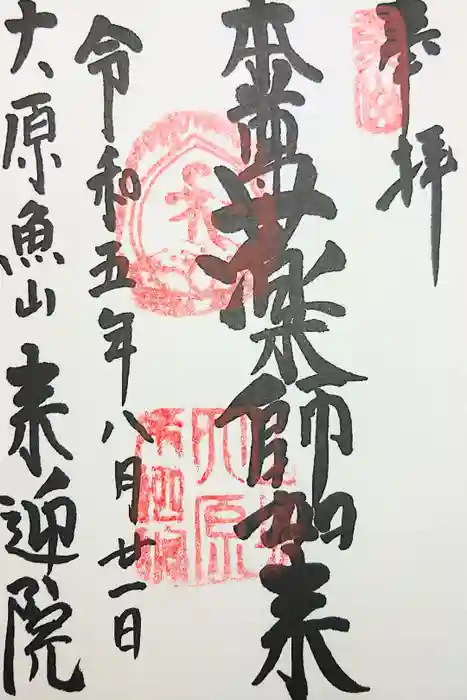 奉拝
本尊薬師如来
令和五年八月廿一日
大原魚山 来迎院
大原